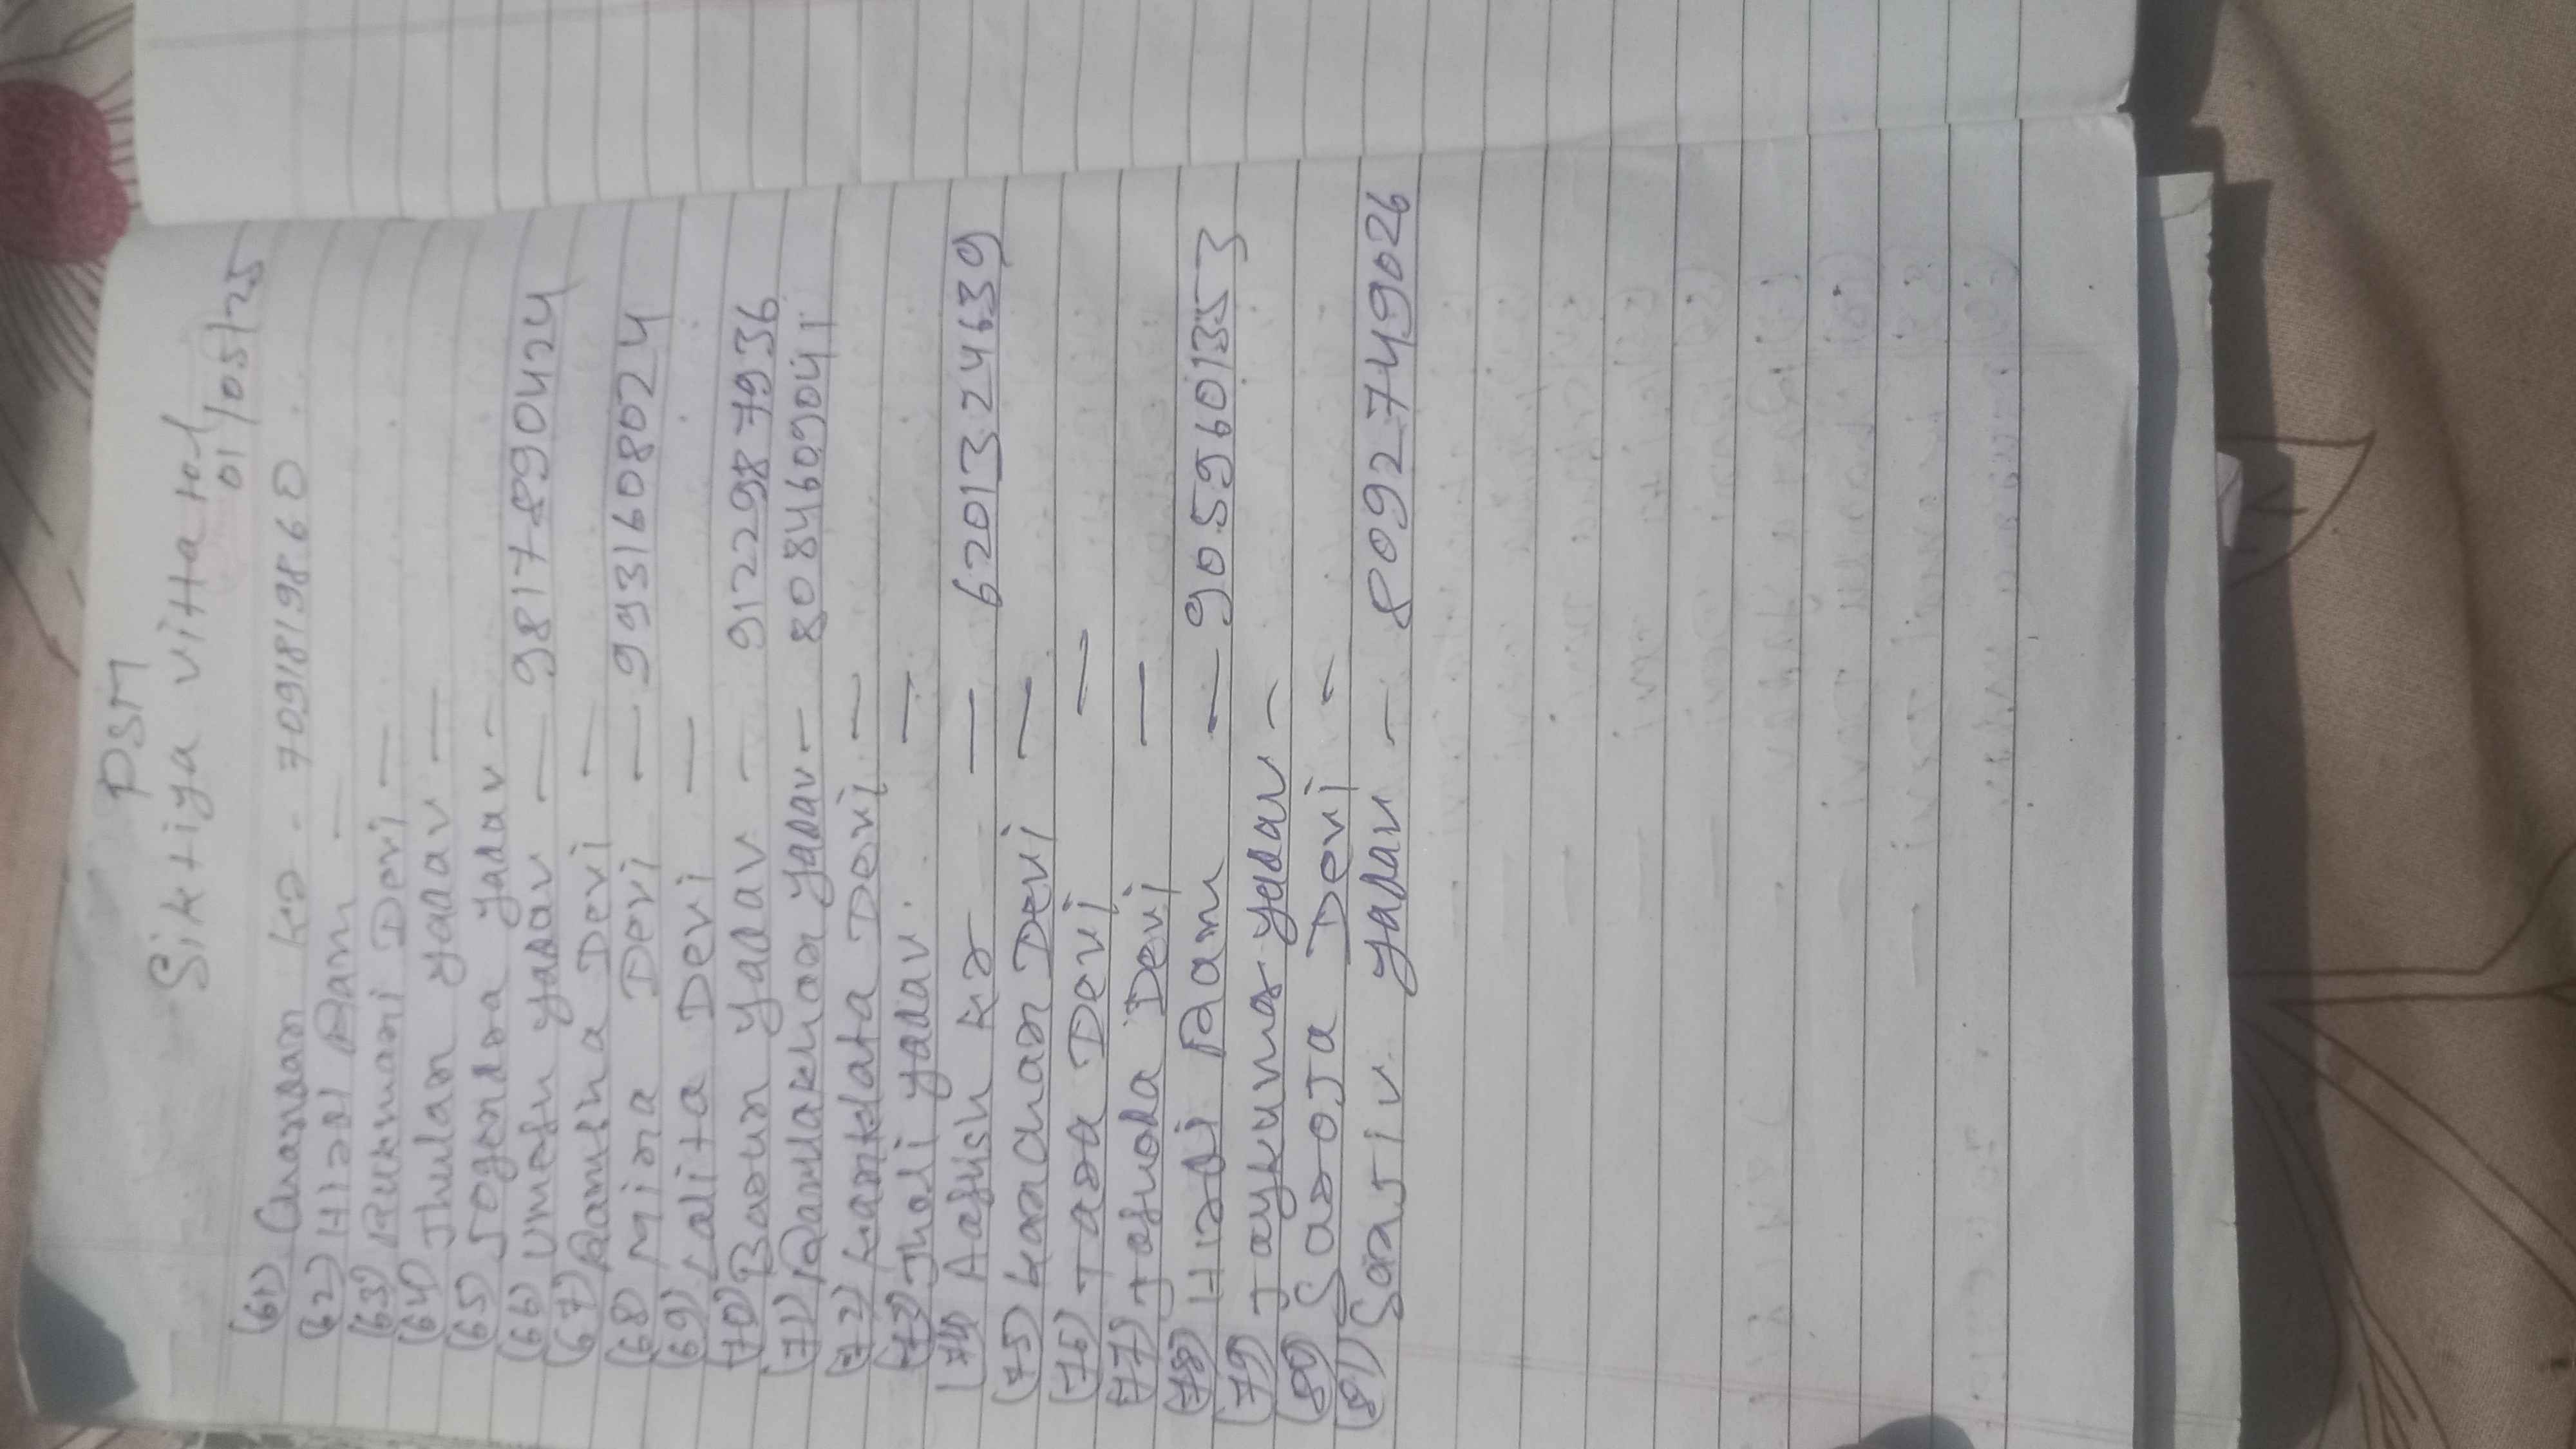 PSM
Siktiya vittatol
01/05/25
(61) Chandan Kr - 7091819860
(62) Ram —
(63) Rukmani Devi —
(64) Jhulan yadav —
(65) Jogendra yadav —
(66) Umesh yadav — 9817890424
(67) Devi —
(68) Mina Devi — 9931608024
(69) Lalita Devi —
(70) yadav — 9122987936
(71) yadav — 8084609041
(72) Devi —
(73) yadav —
(74) Aayush Kr — 6201324639
(75) Kanchan Devi —
(76) Tara Devi —
(77) Jashoda Devi —
(78) Ram — 9059601353
(79) Jaykumar yadav —
(80) Saroja Devi —
(81) Sanjiv yadav — 8092749026